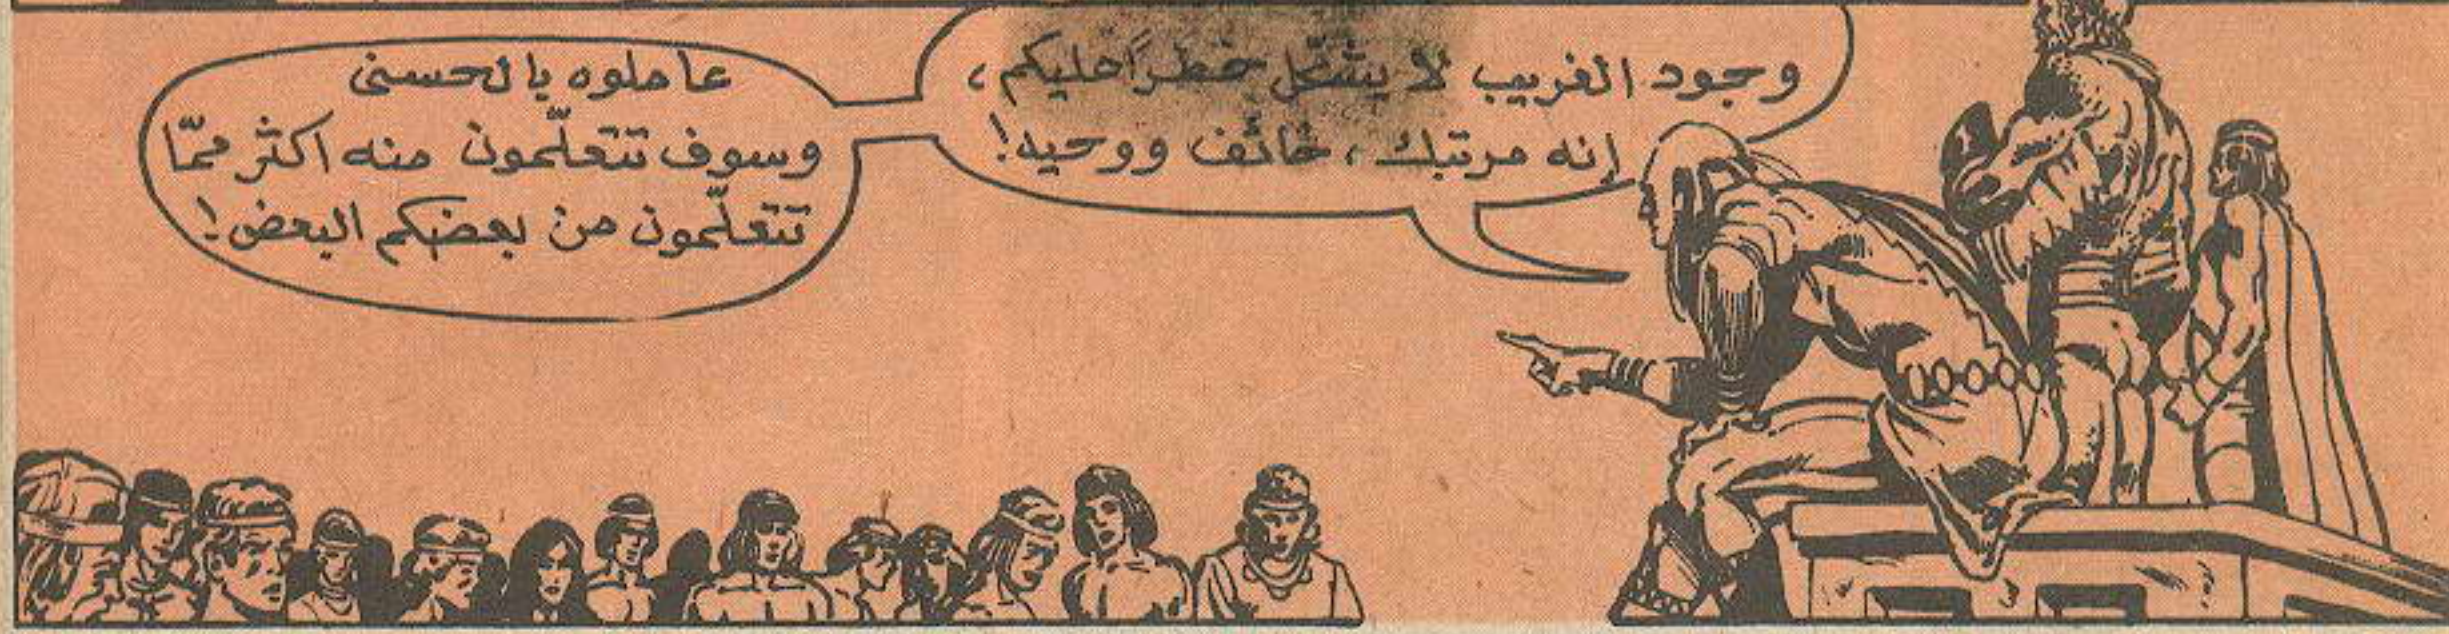 وجود الغريب لا يشكّل خطراً عليكم،
إنه مرتبك، خائف ووحيد!
عاملوه بالحسنى
وسوف تتعلّمون منه اكثر ممّا
تتعلّمون من بعضكم البعض!